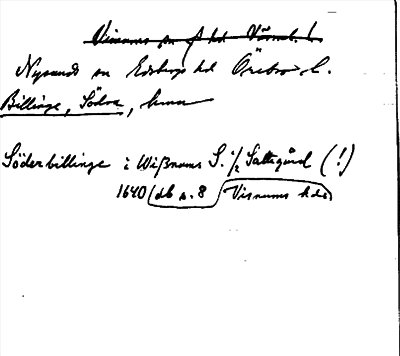 Visnums sn o hd Värml. l.
Nysunds sn Edsbergs hd Örebro l.
Billinge, Södra, hmn
Söderbillinge i Wißnums S. 1/2 Sattegård (!)
1640 (db s. 8 Visnums hds)